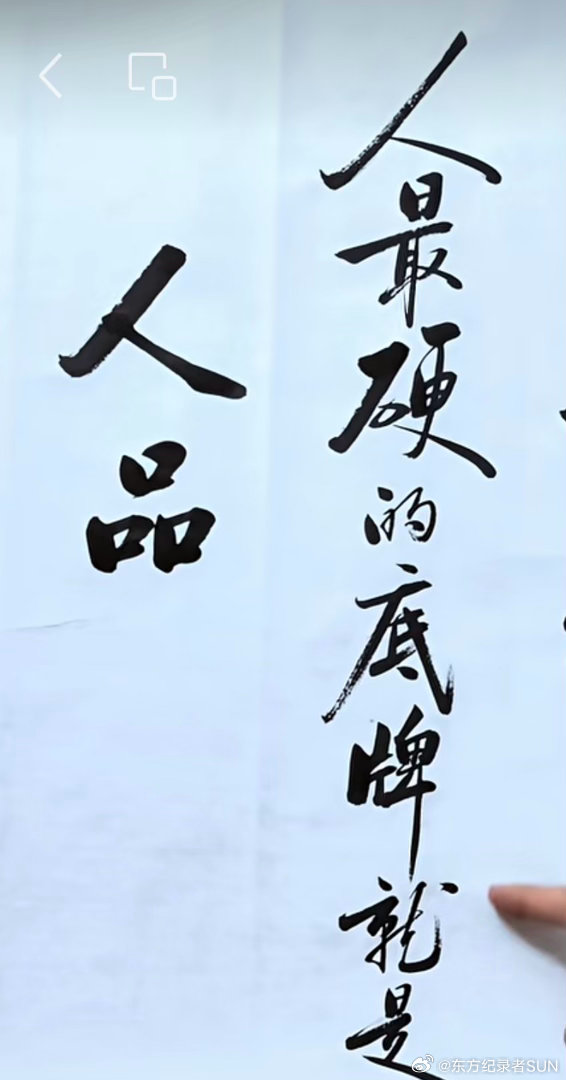 人最硬的底牌就是
人品
@东方纪录者SUN